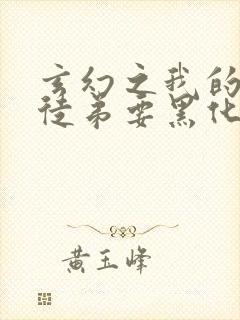 玄幻之我的
徒弟要黑化
黄玉峰